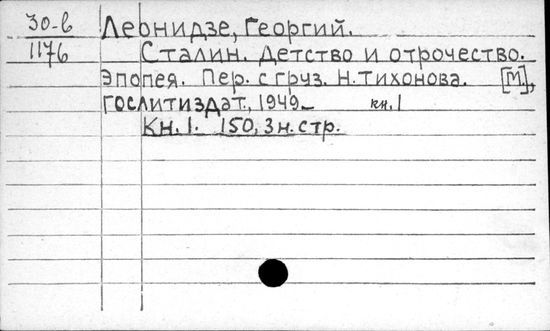 30-в Леонидзе, Георгий.
1176 Сталин. Детство и отрочество.
Эпопея. Пер. с груз. Н. Тихонова. [М],
Гослитиздат, 1949_ кн. 1
Кн. 1. 150, 3 н. стр.